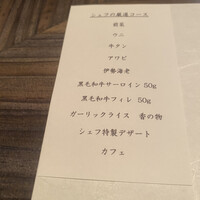 シェフの厳選コース
前菜
ウニ
牛タン
アワビ
伊勢海老
黒毛和牛サーロイン 50g
黒毛和牛フィレ 50g
ガーリックライス 香の物
シェフ特製デザート
カフェ